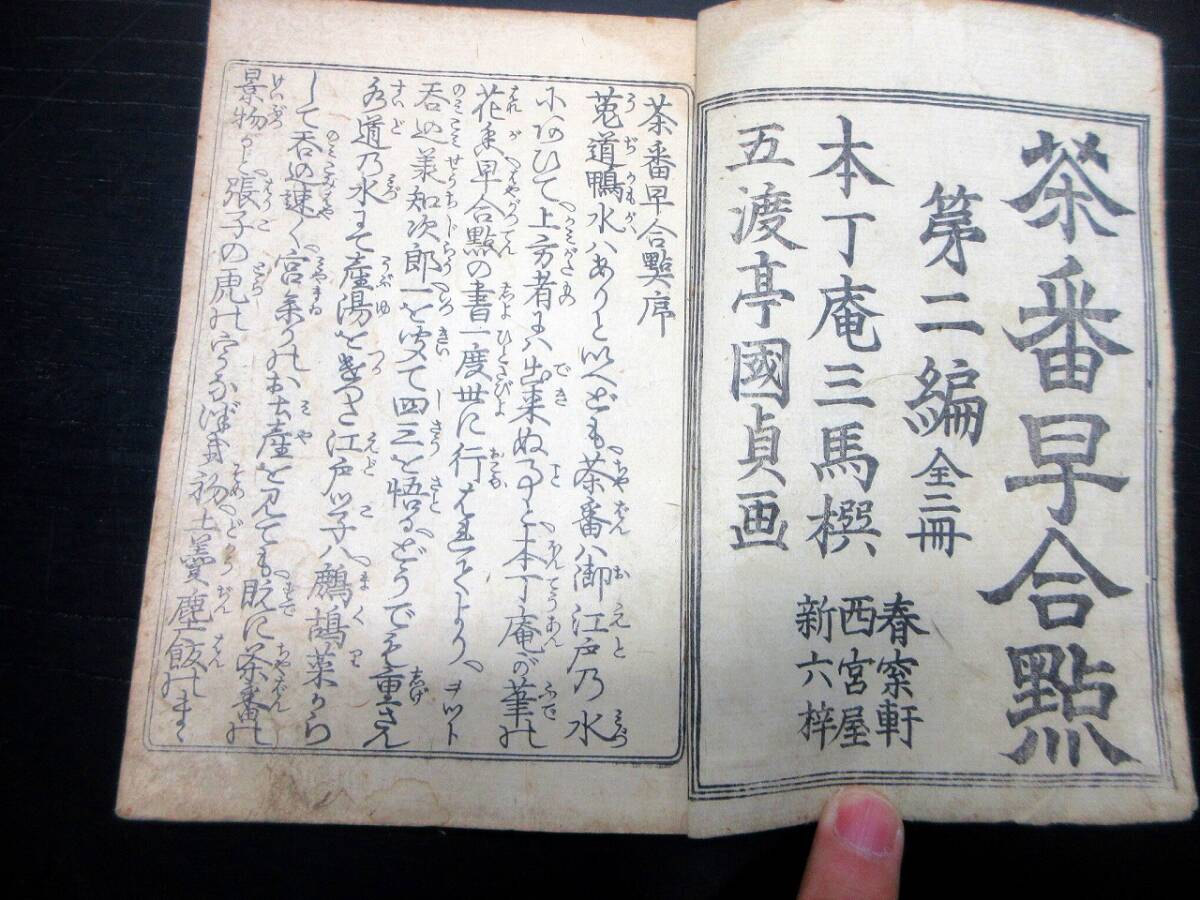 茶番早合點
第二編全三冊
本丁庵三馬撰
五渡亭國貞画
春窓軒
西宮屋
新六梓
茶番早合點序
菟道鴨水ハありといへども茶番ハ御江戸乃水
にあひて上方者にハ出来ぬ事と本丁庵が筆の
花香早合點の書一度世に行はれてより、ヲツト
呑込承知次郎一を聞て四三を悟るどうでも重さん
水道乃水にて産湯をきつた江戸ツ子ハ鷓鴣菜から
して呑込速く宮参りのお土産を見ても既に茶番の
景物がと張子の虎の